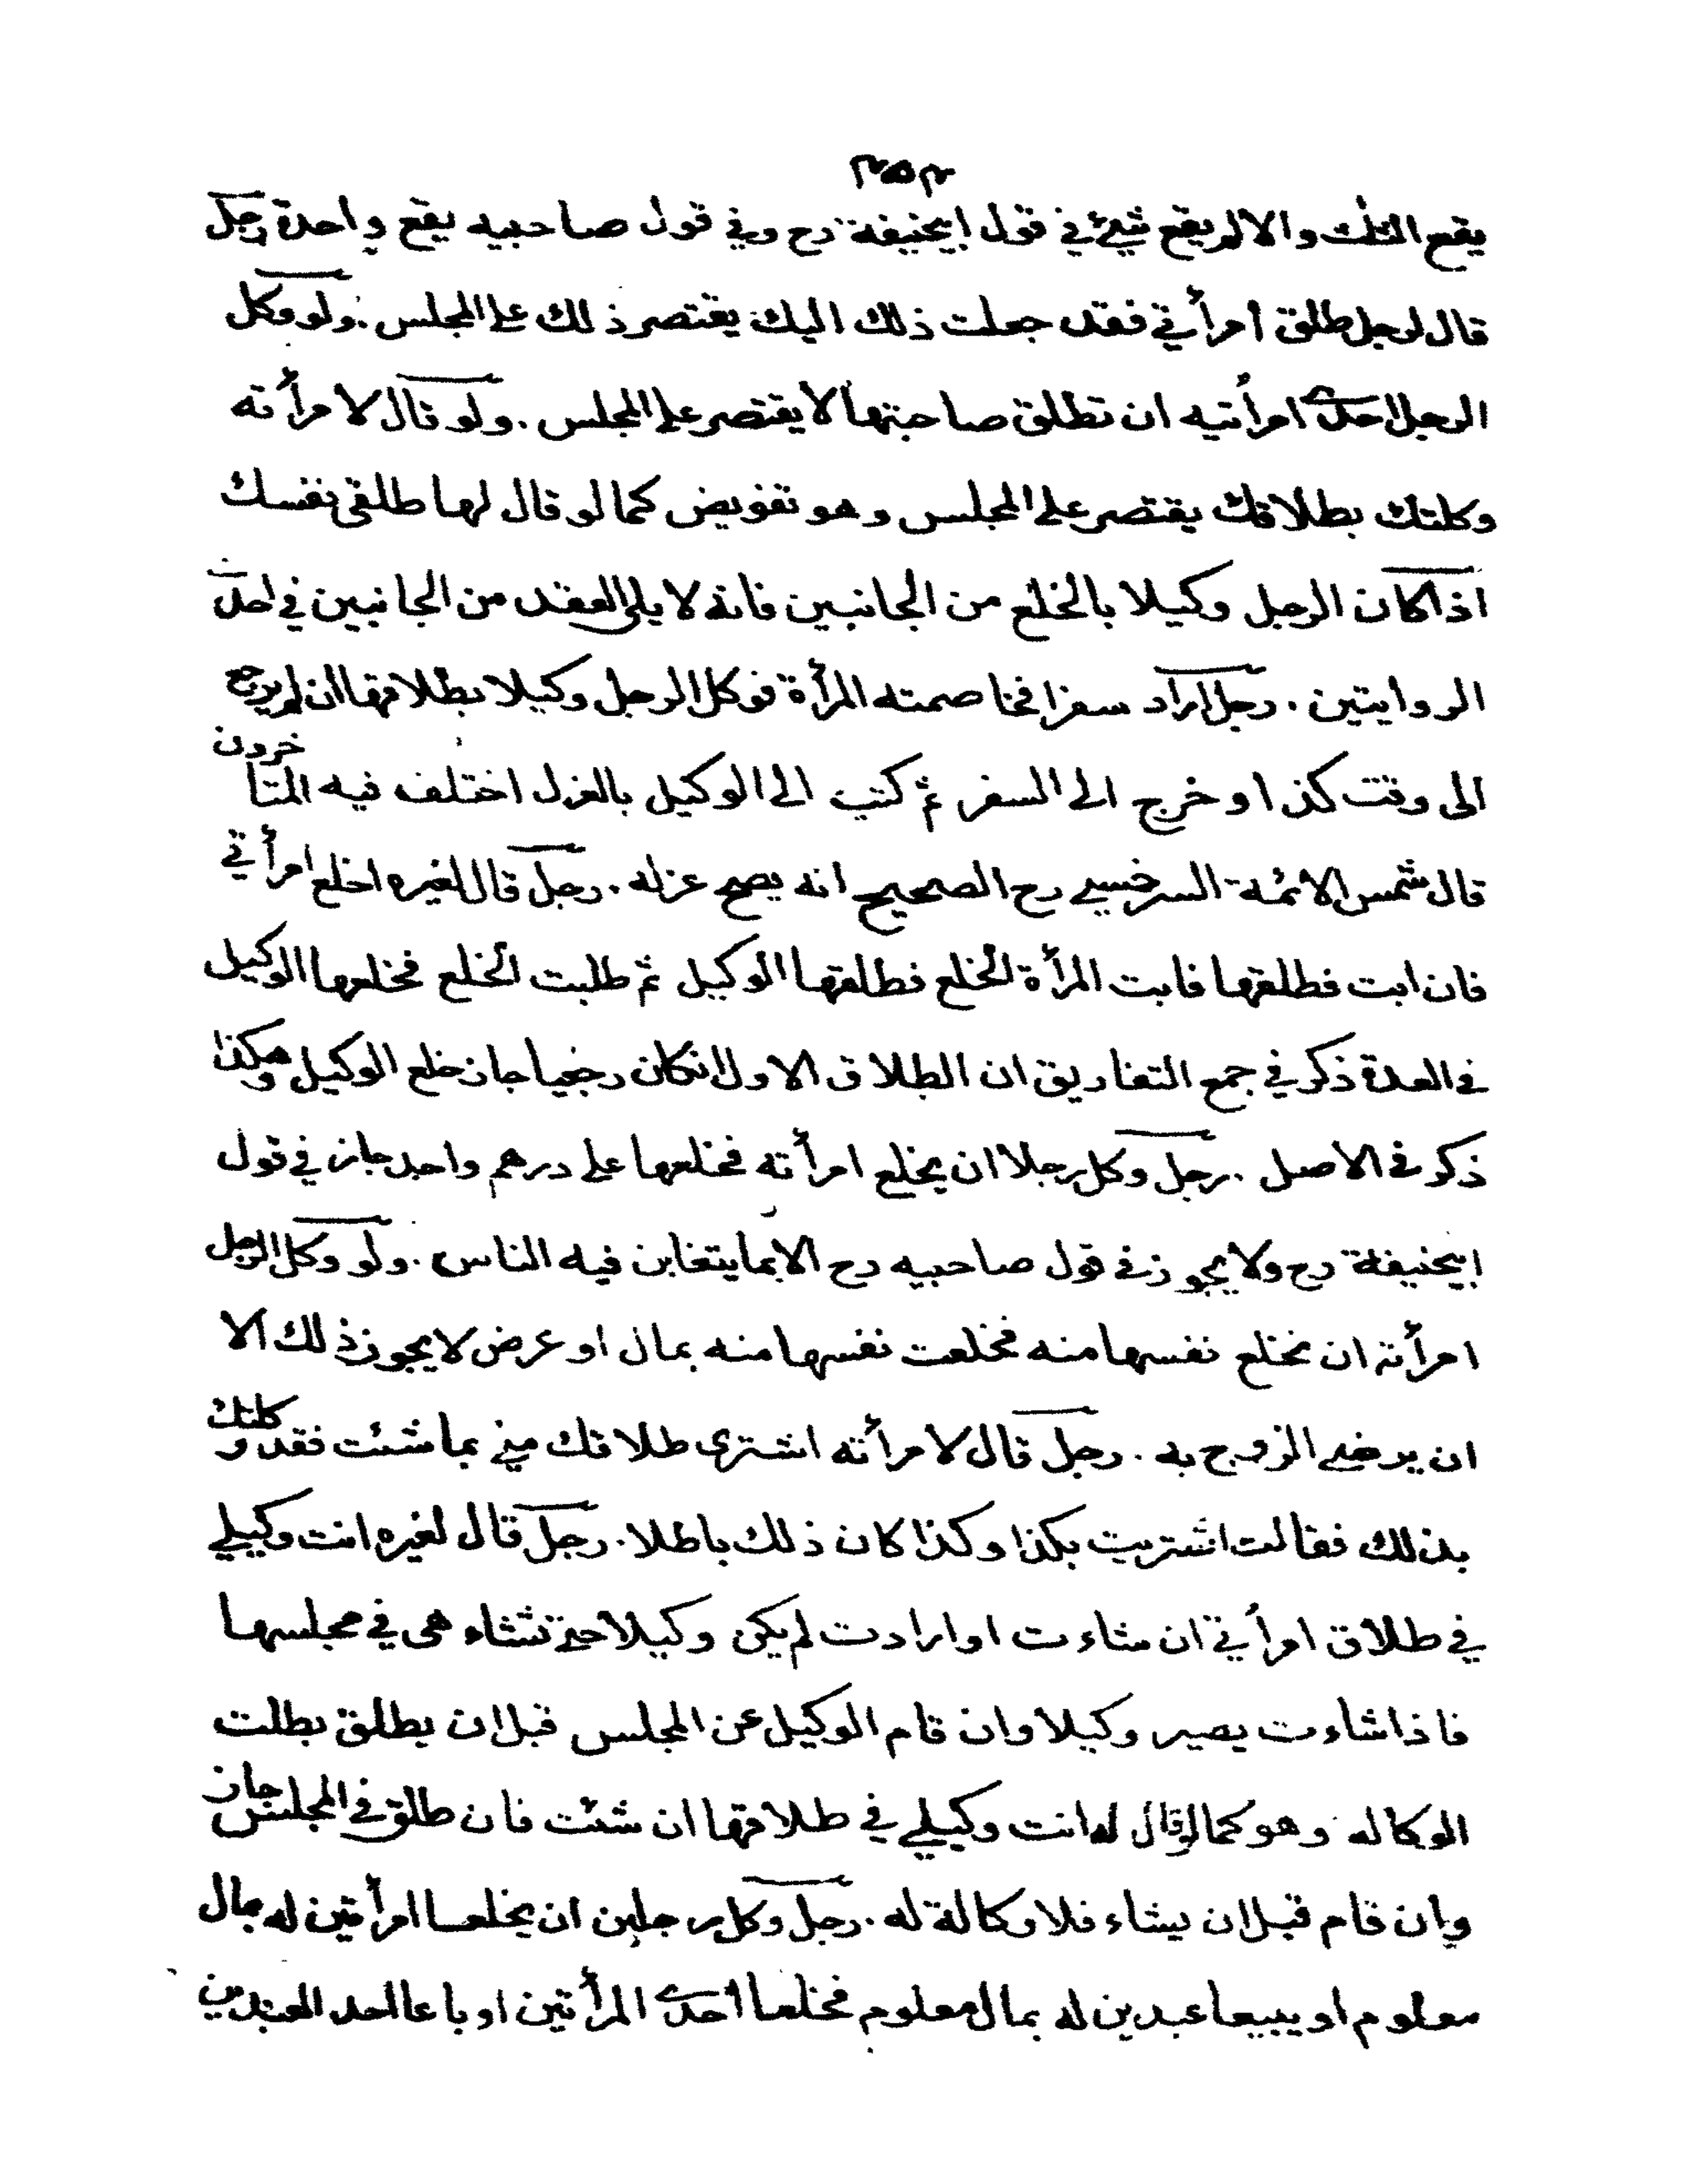 يقع الثلث والا لم يقع شيئ في قول ابيحنيفة رح وفي قول صاحبيه يقع واحدة رجل
قال لرجل طلق امرأتي فقد جعلت ذلك اليك يقتصر ذلك على المجلس . ولو وكل
الرجل احدى امرأتيه ان تطلق صاحبتها لا يقتصر على المجلس . ولو قال لامرأته
وكلتك بطلاقك يقتصر على المجلس وهو تفويض كما لو قال لها طلقي نفسك
اذا كان الرجل وكيلا بالخلع من الجانبين فانه لا يلي العقد من الجانبين في احدى
الروايتين . رجل اراد سفرا فخاصمته المرأة فوكل الرجل وكيلا بطلاقها ان لم يرجع
الى وقت كذا وخرج الى السفر ثم كتب الى الوكيل بالعزل اختلف فيه المتأخرون
قال شمس الائمة السرخسي رح الصحيح انه يصح عزله . رجل قال لغيره اخلع امرأتي
فان ابت فطلقها فابت المرأة الخلع فطلقها الوكيل ثم طلبت الخلع فخلعها الوكيل
في العدة ذكر في جمع التفاريق ان الطلاق الاول انكان رجعيا جاز خلع الوكيل وهكذا
ذكر في الاصل . رجل وكل رجلا ان يخلع امرأته فخلعها على درهم واحد جاز في قول
ابيحنيفة رح ولا يجوز في قول صاحبيه رح الا بما يتغابن فيه الناس . ولو وكل الرجل
امرأته ان تخلع نفسها منه فخلعت نفسها منه بمال او عرض لا يجوز ذلك الا
ان يرضى الزوج به . رجل قال لامرأته اشترى طلاقك مني بما شئت فقد وكلتك
بذلك فقالت اشتريت بكذا وكذا كان ذلك باطلا . رجل قال لغيره انت وكيلي
في طلاق امرأتي ان شاءت او ارادت لم يكن وكيلا حتى تشاء هي في مجلسها
فاذا شاءت يصير وكيلا وان قام الوكيل عن المجلس قبل ان يطلق بطلت
الوكاله وهو كما لو قال له انت وكيلي في طلاقها ان شئت فان طلق في المجلس جاز
وان قام قبل ان يشاء فلا وكالة له . رجل وكل رجلين ان يخلعا امرأتين له بمال
معلوم او يبيعا عبدين له بمال معلوم فخلعا احدى المرأتين او باعا احد العبدين